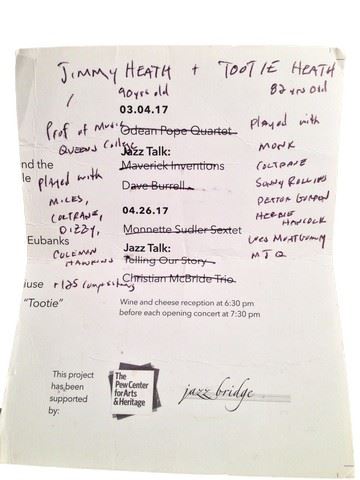 JIMMY HEATH + TOOTIE HEATH
90 yrs old
82 yrs old
03.04.17
Prof of Music
QUEENS College
Odean Pope Quartet
Jazz Talk:
Maverick Inventions
Dave Burrell
nd the
le
played with
MILES,
COLTRANE,
DIZZY,
COLEMAN
HAWKINS
+125 compositions
Eubanks
iuse
"Tootie"
04.26.17
Monnette Sudler Sextet
Jazz Talk:
Telling Our Story
Christian McBride Trio
played with
MONK
COLTRANE
SONNY ROLLINS
DEXTER GORDON
HERBIE
HANCOCK
WES MONTGOMERY
MJQ
Wine and cheese reception at 6:30 pm
before each opening concert at 7:30 pm
This project
has been
supported
by:
The
Pew Center
for Arts
& Heritage
jazz bridge